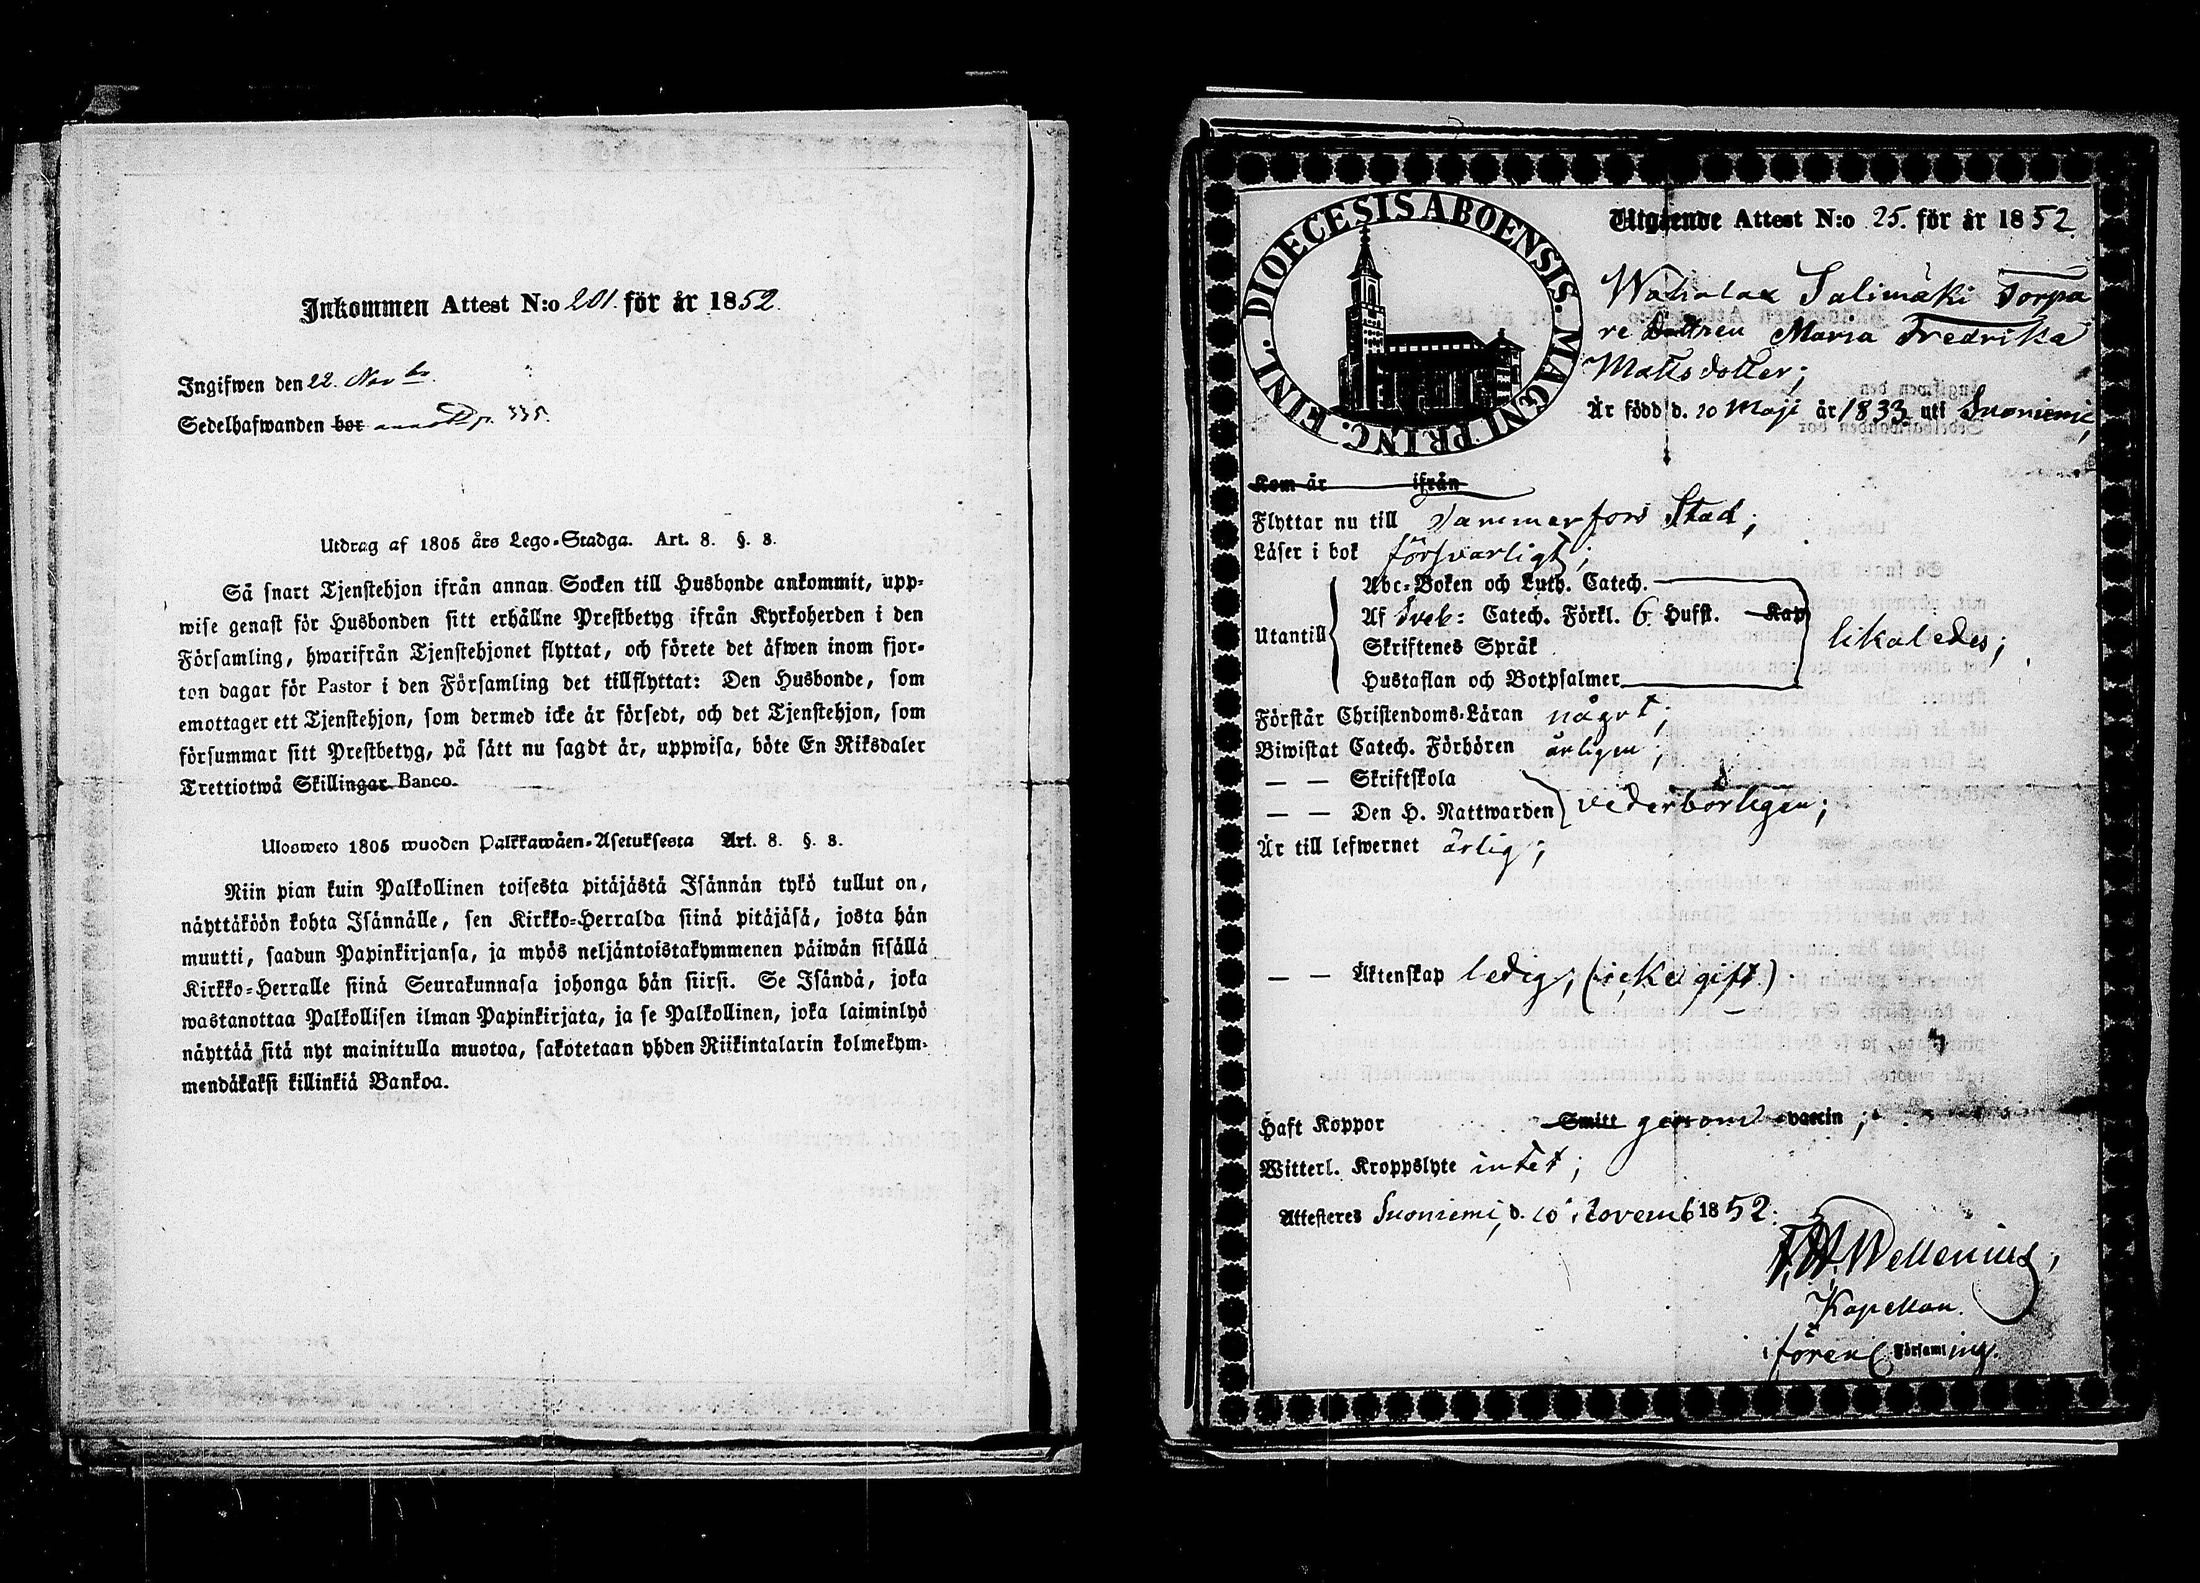 Inkommen Attest N:o 201. för år 1852.
Ingifwen den 22. Novbr.
Sedelhafwanden bor annot. p. 335.
Utdrag af 1805 års Lego-Stadga. Art. 8. §. 8.
Så snart Tjenstehjon ifrån annan Socken till Husbonde ankommit, upp-
wise genast för Husbonden sitt erhållne Prestbetyg ifrån Kyrkoherden i den
Församling, hwarifrån Tjenstehjonet flyttat, och förete det äfwen inom fjor-
ton dagar för Pastor i den Församling det tillflyttat: Den Husbonde, som
emottager ett Tjenstehjon, som dermed icke är försedt, och det Tjenstehjon, som
försummar sitt Prestbetyg, på sätt nu sagdt är, uppwisa, böte En Riksdaler
Trettiotwå Skillingar Banco.
Ulosweto 1805 wuoden Palkkawäen-Asetuksesta Art. 8. §. 8.
Niin pian kuin Palkollinen toisesta pitäjästä Isännän tykö tullut on,
näyttäköön kohta Isännälle, sen Kirkko-Herralda siinä pitäjäsä, josta hän
muutti, saadun Papinkirjansa, ja myös neljäntoistakymmenen päiwän sisällä
Kirkko-Herralle siinä Seurakunnasa johonga hän siirsi. Se Isändä, joka
wastanottaa Palkollisen ilman Papinkirjata, ja se Palkollinen, joka laiminlyö
näyttää sitä nyt mainitulla muotoa, sakotetaan yhden Riikintalarin kolmekym-
mendäkaksi killinkiä Bankoa.
DIOECESIS ABOENSIS. MAGNI PRINC. FINL.
Utgående Attest N:o 25. för år 1852.
Wahalax Salimäki Torpa
re Dottren Maria Fredrika
Mattsdotter;
Är född d. 20 Maji år 1833 uti Suoniemi,
Kom år ifrån
Flyttar nu till Tammerfors Stad;
Läser i bok försvarligt;
Abc-Boken och Luth. Catech.
Af Sveb: Catech. Förkl. 6 Hufst. Kap
Utantill likaledes;
Skriftenes Språk
Hustaflan och Botpsalmer
Förstår Christendoms-Läran något;
Biwistat Catech. Förhören årligen;
— — Skriftskola
— — Den H. Nattwarden vederbörligen;
Är till lefwernet ärlig;
— — Äktenskap ledig, (icke gift).
Haft Koppor Smitt genom vaccin;
Witterl. Kroppslyte intet;
Attesteres Suoniemi, d. 10 Novemb 1852:
F. W. Wellenius,
Kapellan.
i fören. Församling.